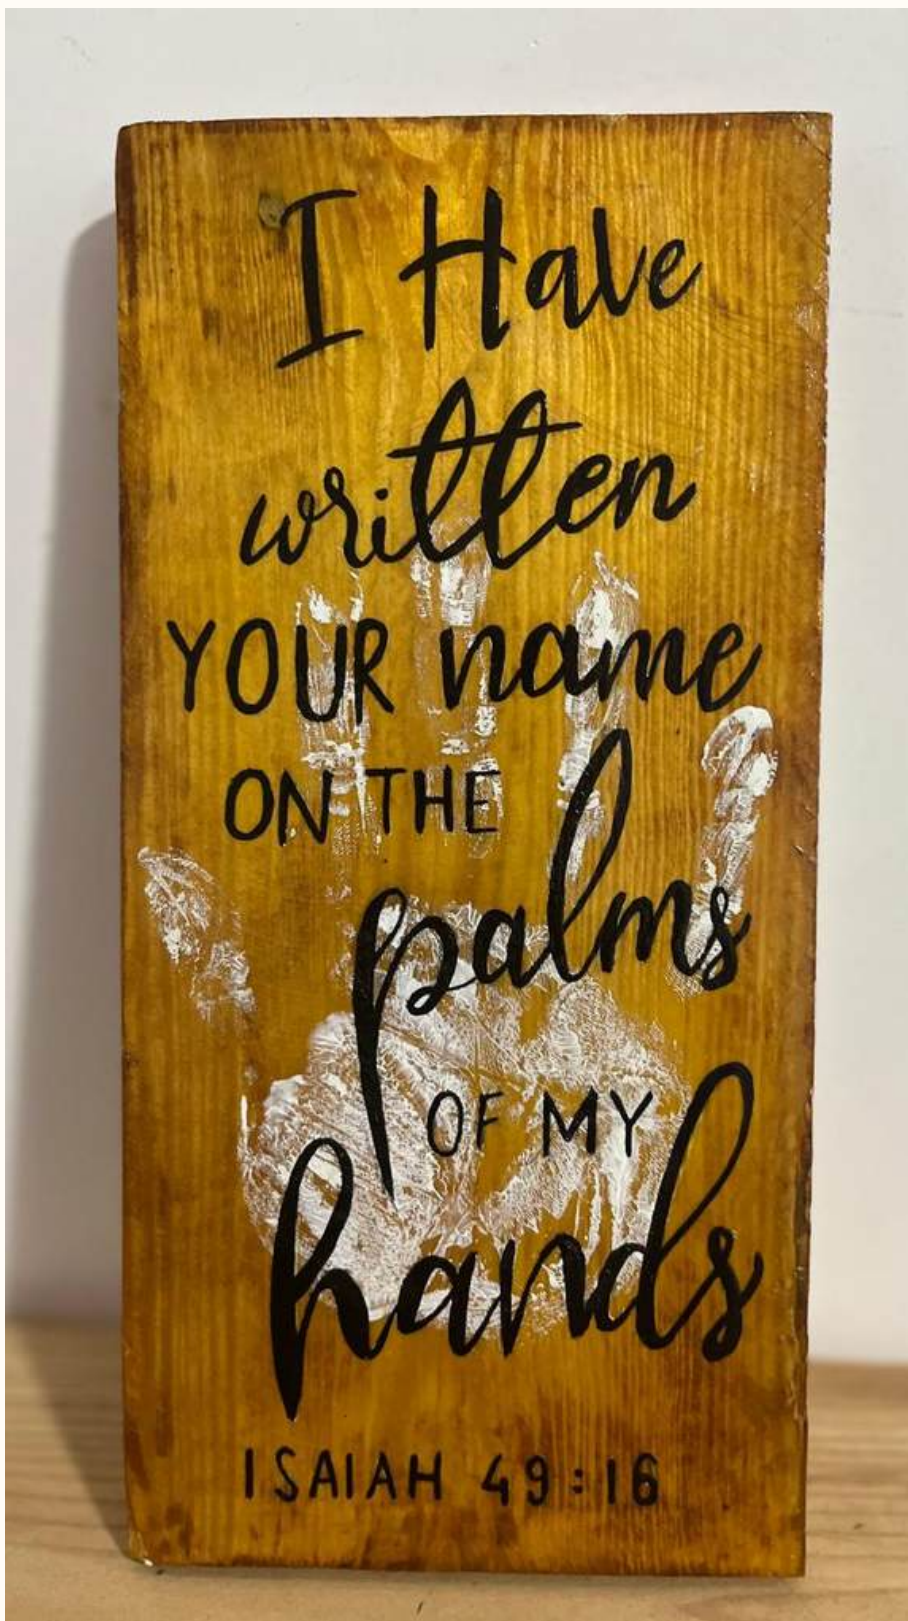 I Have
written
YOUR name
ON THE
palms
OF MY
hands
ISAIAH 49:16